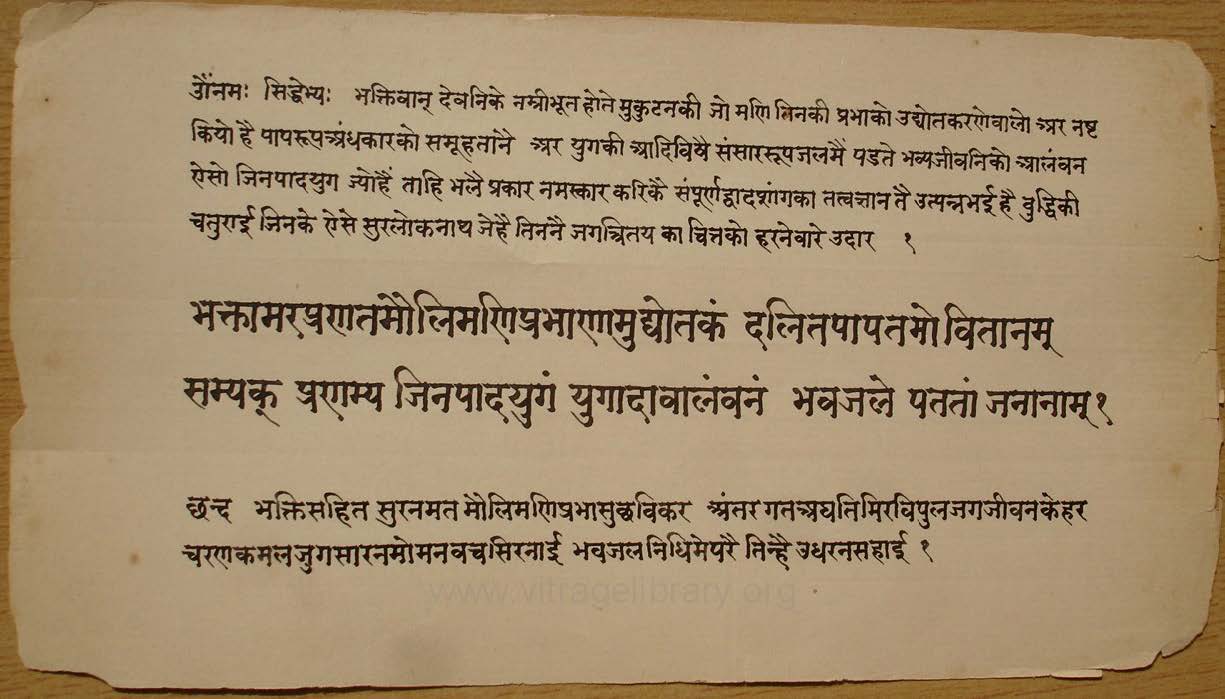 ॐनमः सिद्धेभ्यः भक्तिवान् देवनिके नम्रीभूत होते मुकुटनकी जो मणि तिनकी प्रभाको उद्योतकरणेवालो अर नष्ट
कियो है पापरूपअंधकारको समूहतानै अर युगकी आदिविषै संसाररूपजलमैं पडते भव्यजीवनिको आलंवन
ऐसो जिनपादयुग ज्योहैं ताहि भलै प्रकार नमस्कार करिकैं संपूर्णद्वादशांगका तत्वज्ञान तै उत्पन्नभई है वुद्धिकी
चतुराई जिनके ऐसे सुरलोकनाथ जेहै तिननै जगत्रितय का चित्तको हरनेवारे उदार १
भक्तामरप्रणतमौलिमणिप्रभाणामुद्योतकं दलितपापतमोवितानम्
सम्यक् प्रणम्य जिनपादयुगं युगादावालंवनं भवजले पततां जनानाम् १
छन्द भक्तिसहित सुरनमत मौलिमणिप्रभासुछविकर अंतर गतअघतिमिरविपुलजगजीवनकेहर
चरणकमलजुगसारनमोमनवचसिरनाई भवजलनिधिमेपरै तिन्है उधरनसहाई १
www.vitragelibrary.org